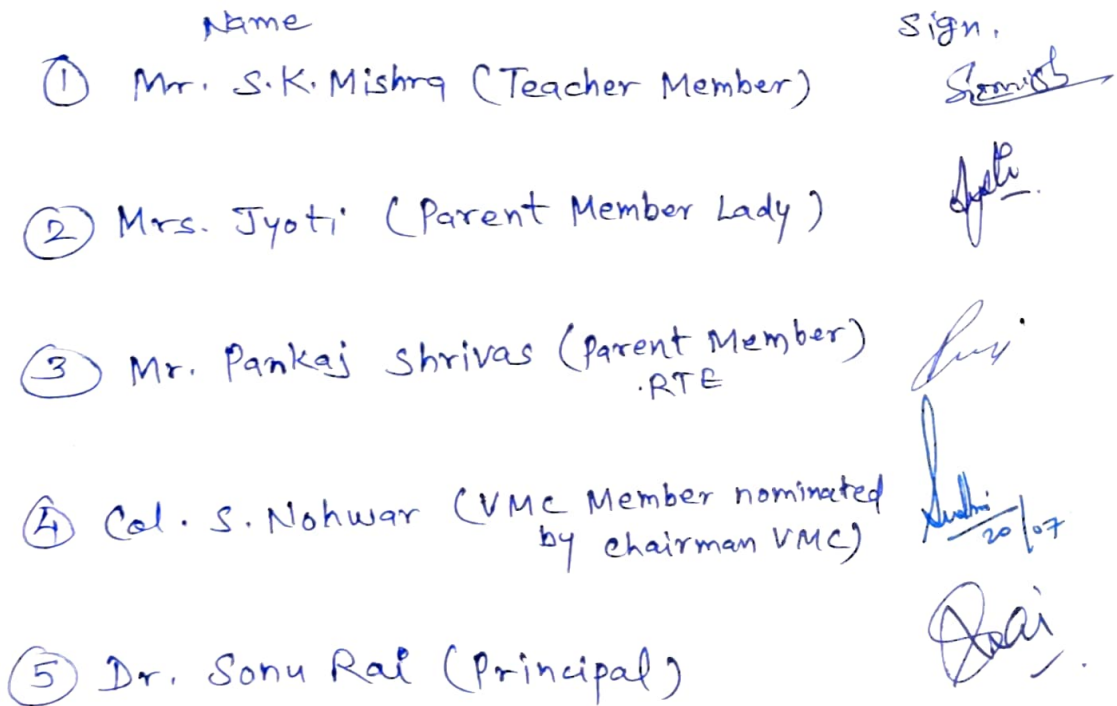 Name Sign.
① Mr. S.K. Mishra (Teacher Member)
② Mrs. Jyoti (Parent Member Lady)
③ Mr. Pankaj Shrivas (Parent Member)
.RTE
④ Col. S. Nohwar (VMC Member nominated
by chairman VMC)
20/07
⑤ Dr. Sonu Rai (Principal)